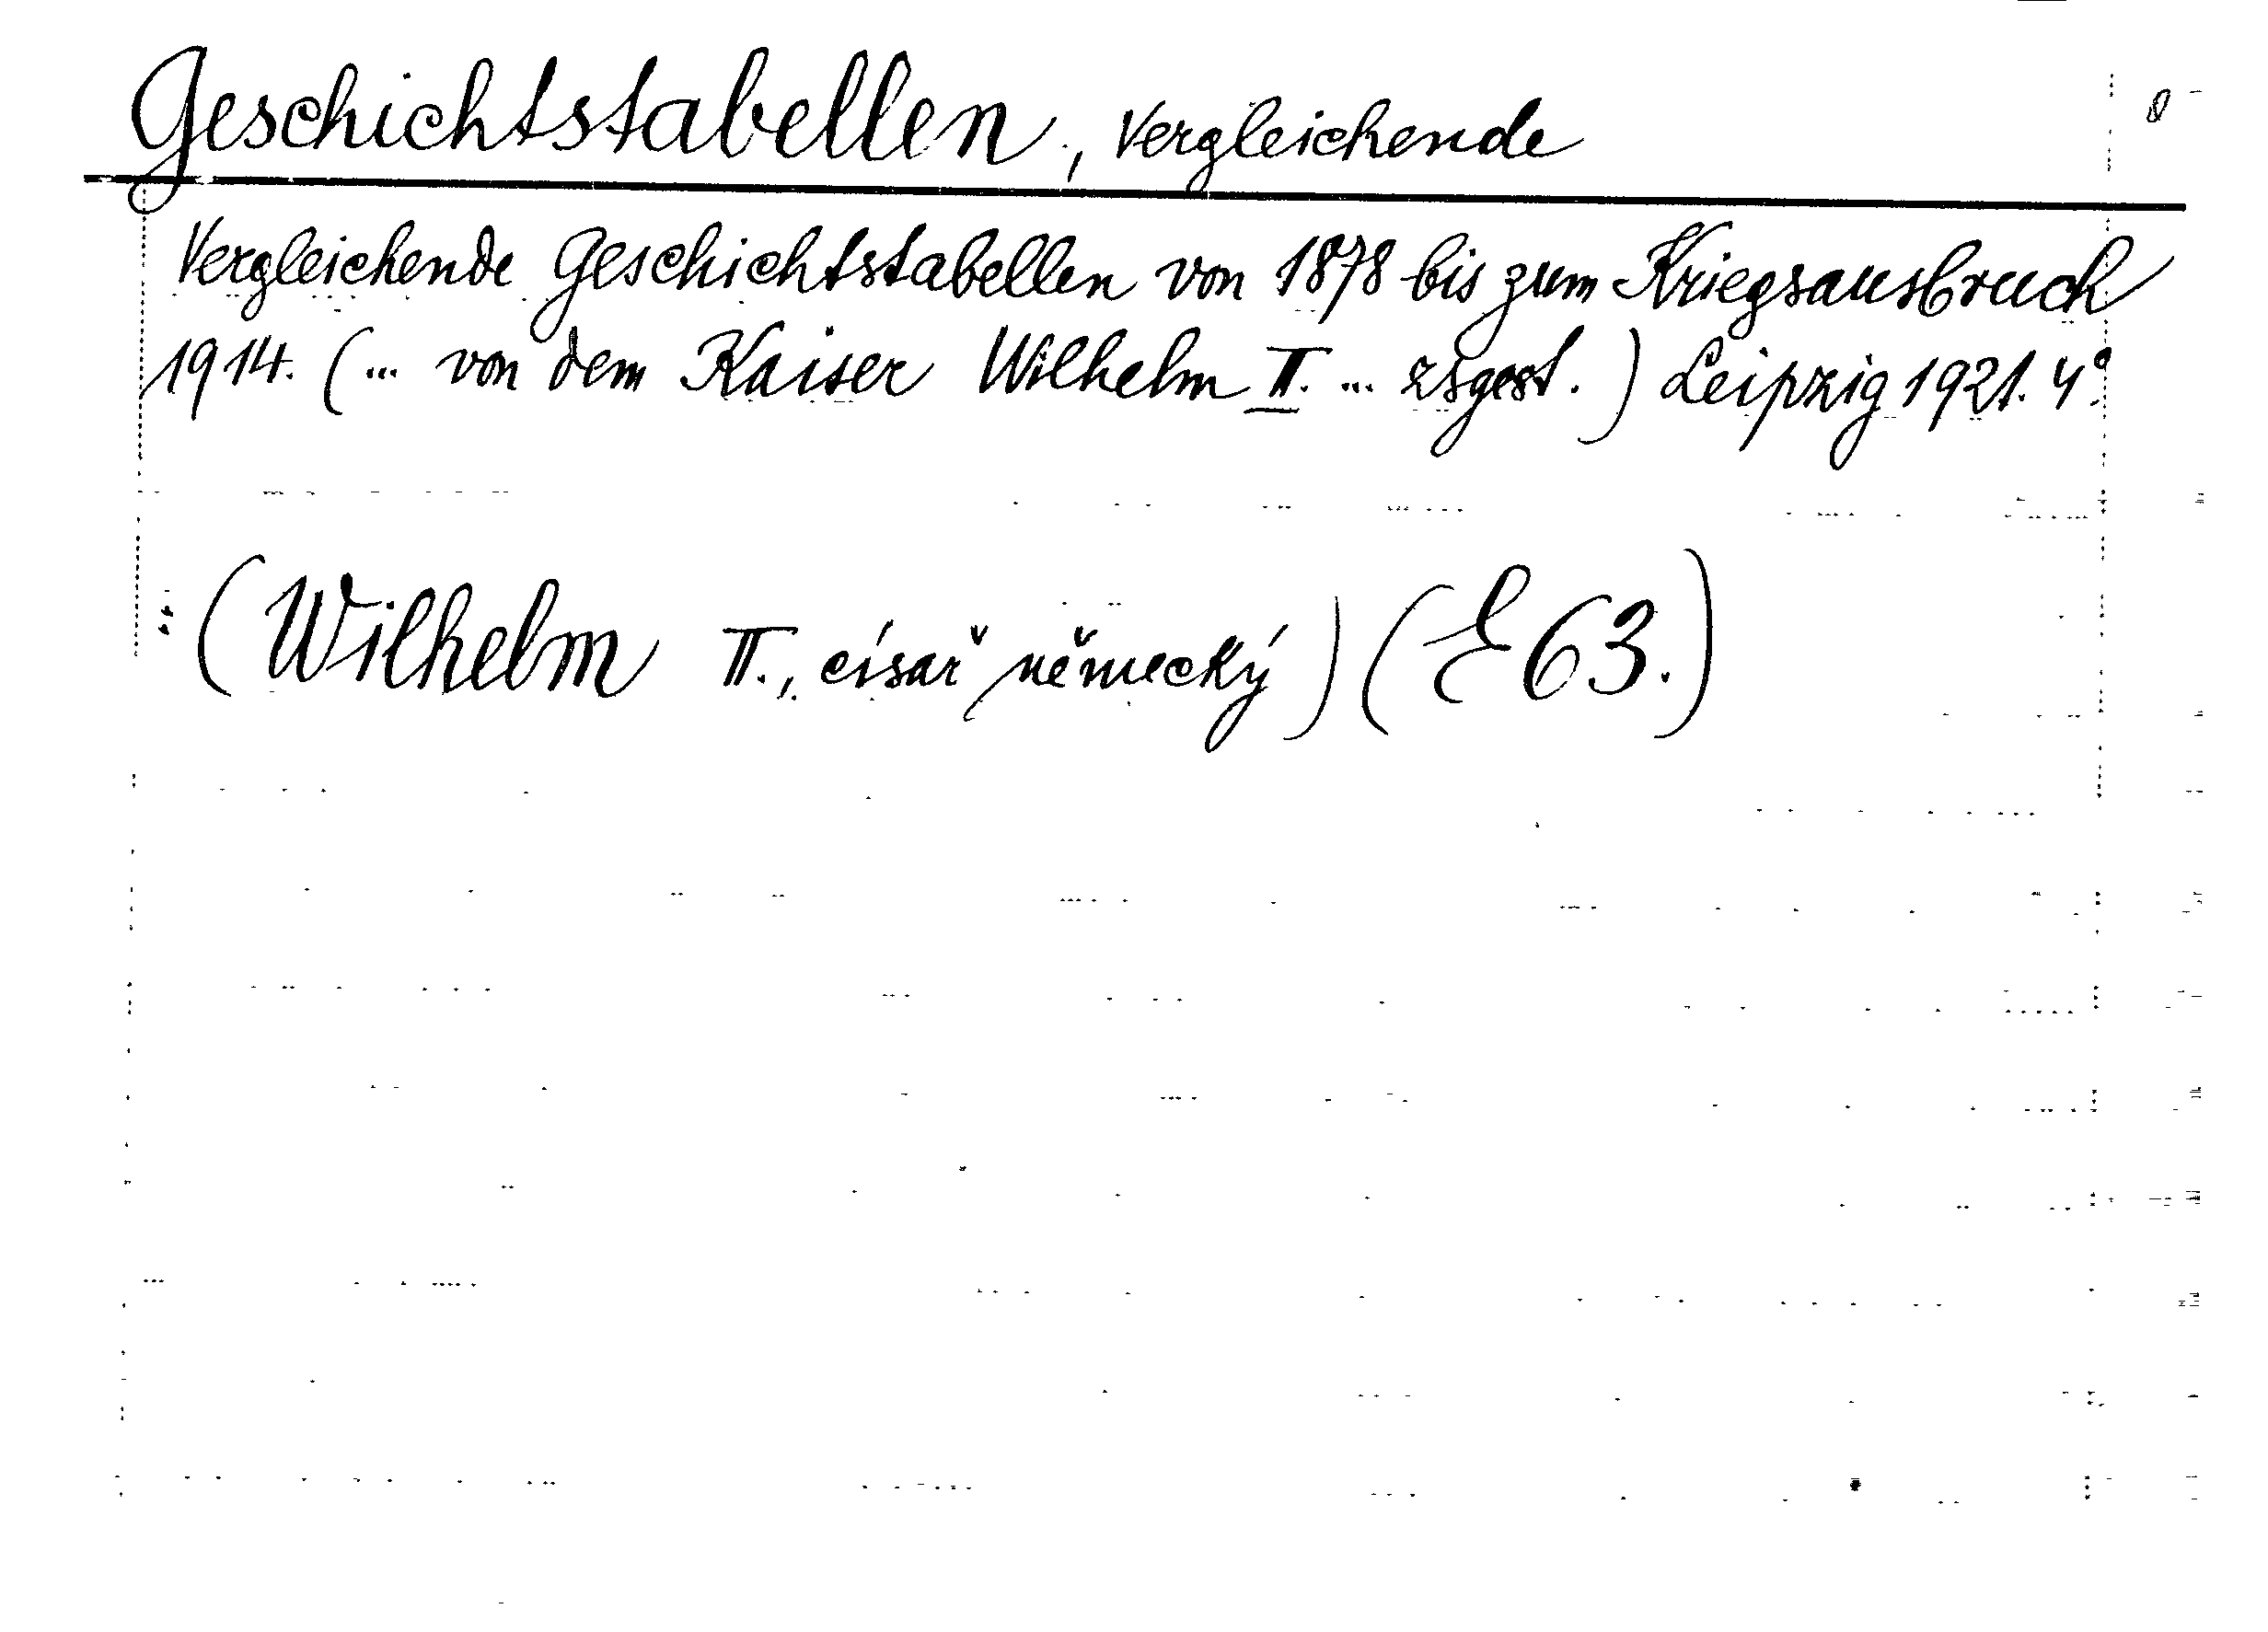 Geschichtstabellen, Vergleichende
Vergleichende Geschichtstabellen von 1878 bis zum Kriegsausbruch
1914. (... von dem Kaiser Wilhelm II. ... zsgest.) Leipzig 1921. 4°.
(Wilhelm II., císař německý) (E 63.)